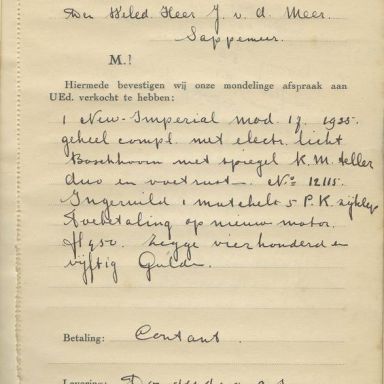 Den Weled. Heer J. v. d. Meer.
Sappemeer.
M.!
Hiermede bevestigen wij onze mondelinge afspraak aan
UEd. verkocht te hebben:
1 New-Imperial mod. 17. 1925.
geheel compl. met electr. licht
Boschhoorn met spiegel K.M. teller
duo en voetrust. No 12115.
Ingeruild 1 matchels 5 P.K. zijklep
Toebetaling op nieuw motor.
ƒ450. Zegge vierhonderd en
vijftig Gulden.
Betaling: Contant.
Levering: